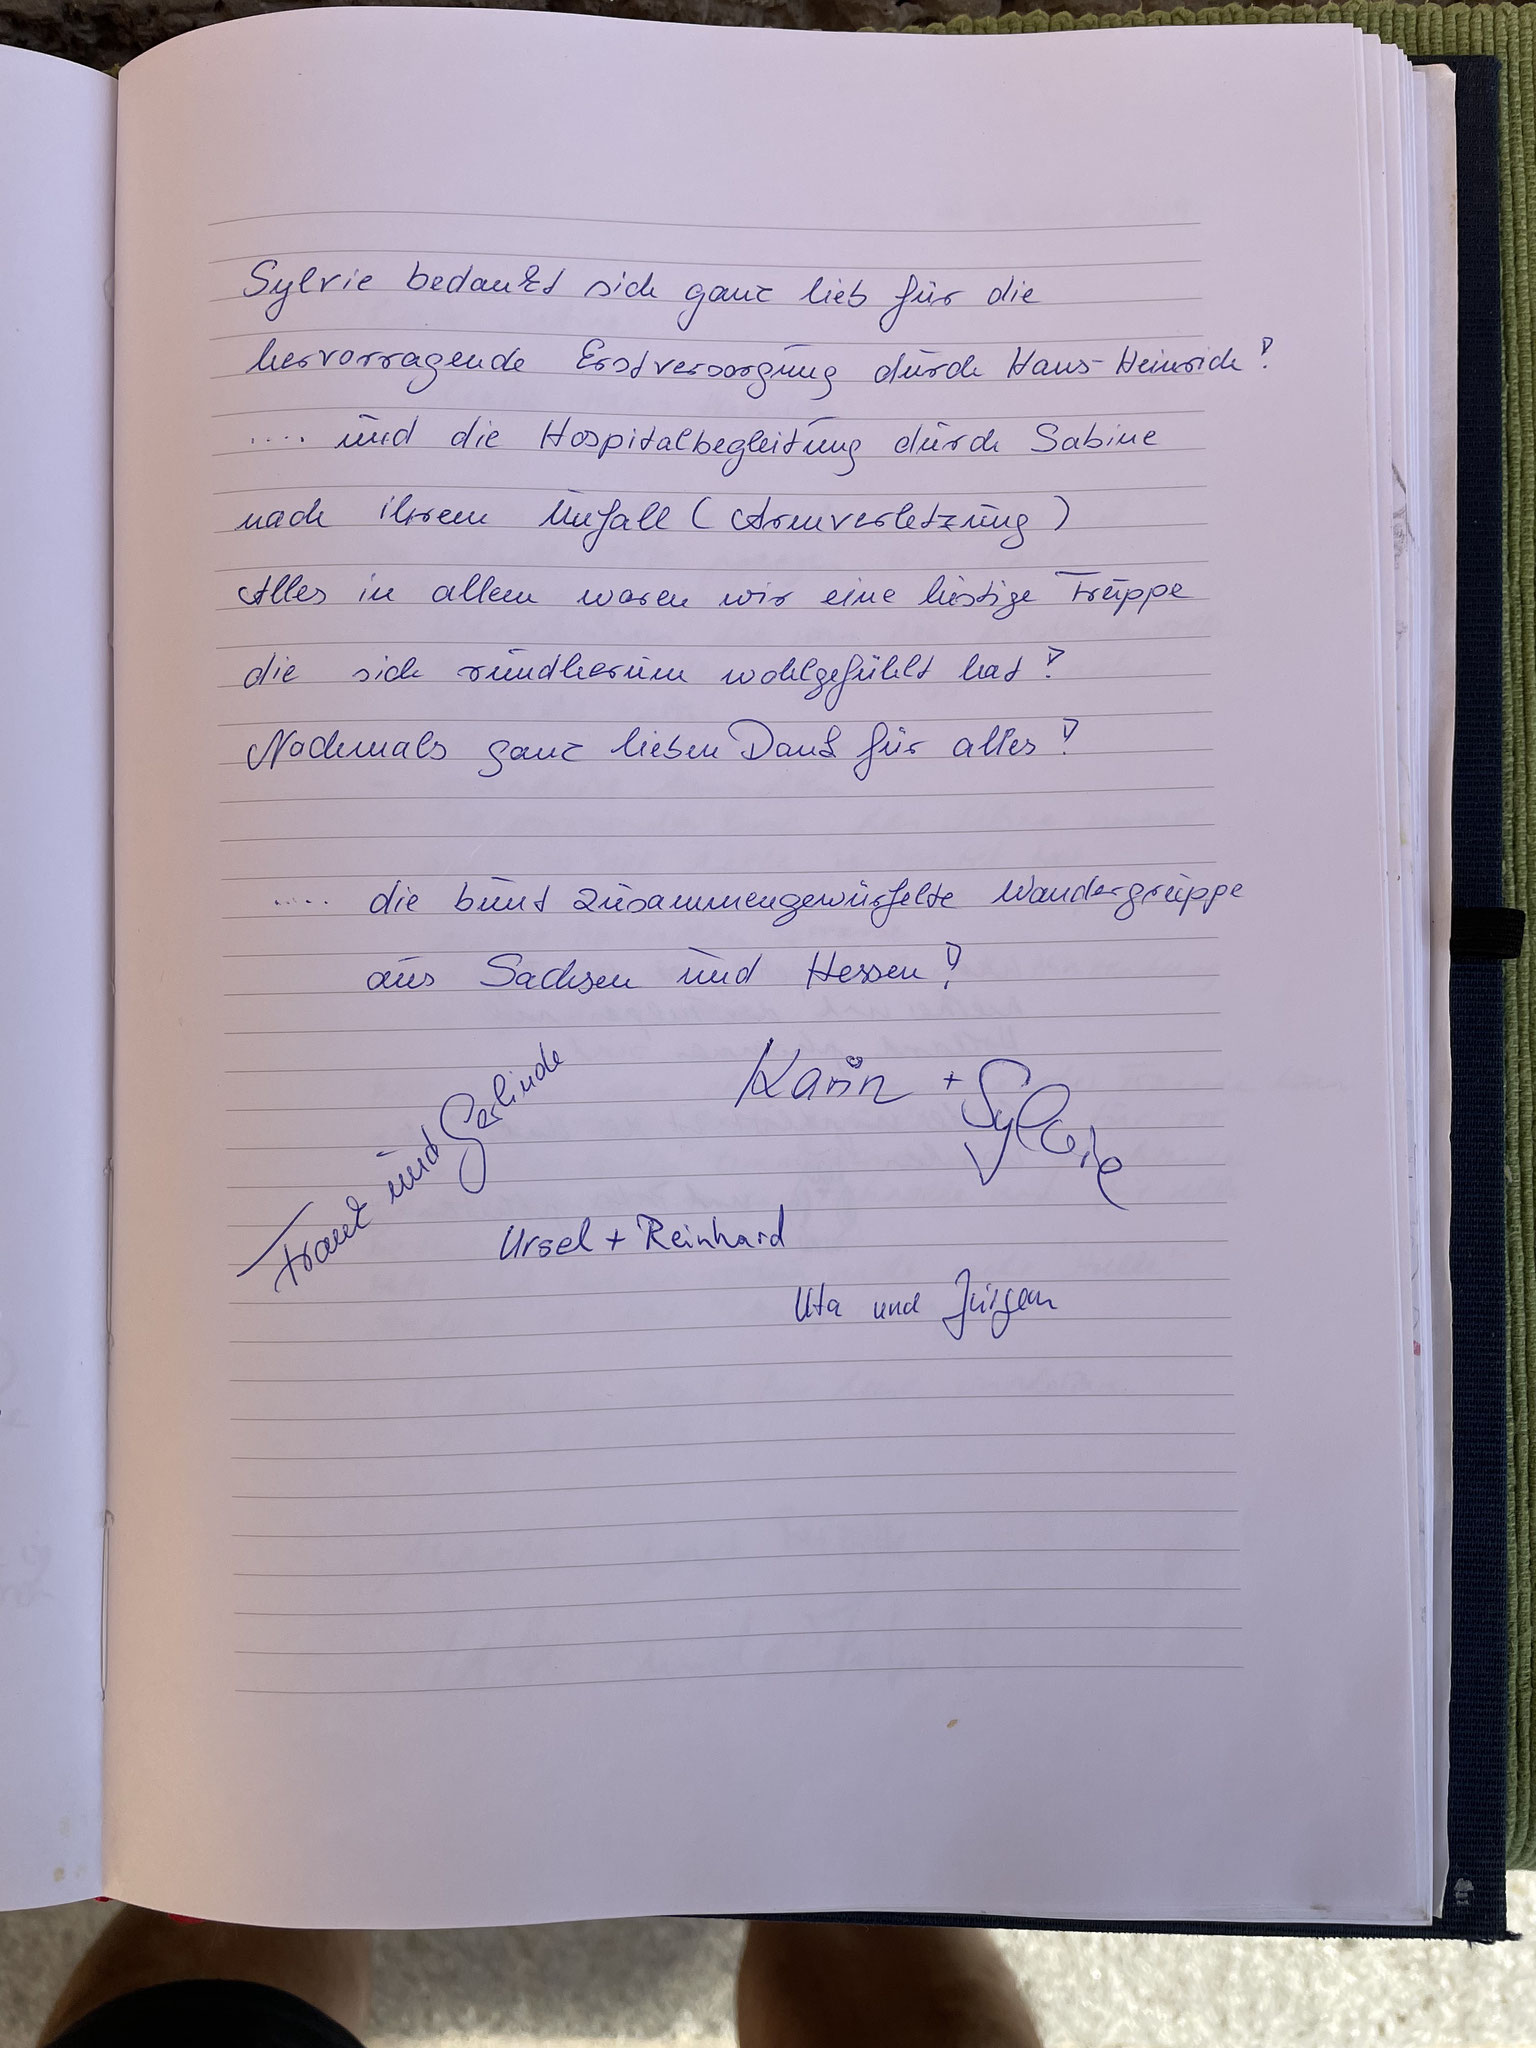 Sylvie bedankt sich ganz lieb für die
hervorragende Erstversorgung durch Hans-Heinrich!
.... und die Hospitalbegleitung durch Sabine
nach ihrem Unfall (Armverletzung)
Alles in allem waren wir eine lustige Truppe
die sich rundherum wohlgefühlt hat!
Nochmals ganz lieben Dank für alles!
..... die bunt zusammengewürfelte Wandergruppe
aus Sachsen und Hessen!
Karin + Sylvie
Frank und Gerlinde
Ursel + Reinhard
Uta und Jürgen